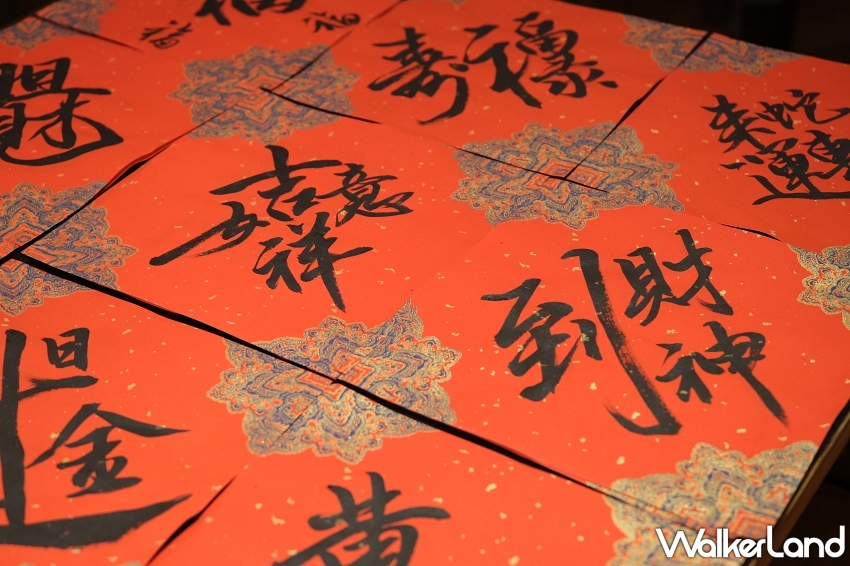 福
福
壽
蛇來運轉
吉祥如意
財神到
日
金
黃
WALKERLAND